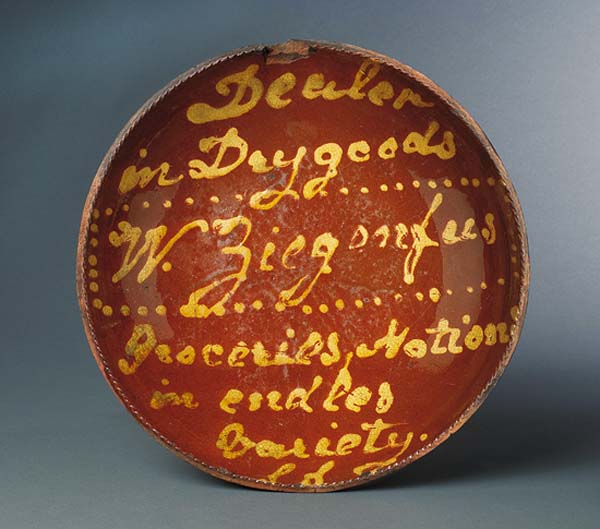 Dealer
in Drygoods
W. Ziegonfus
Groceries, Notions
in endles
Variety.